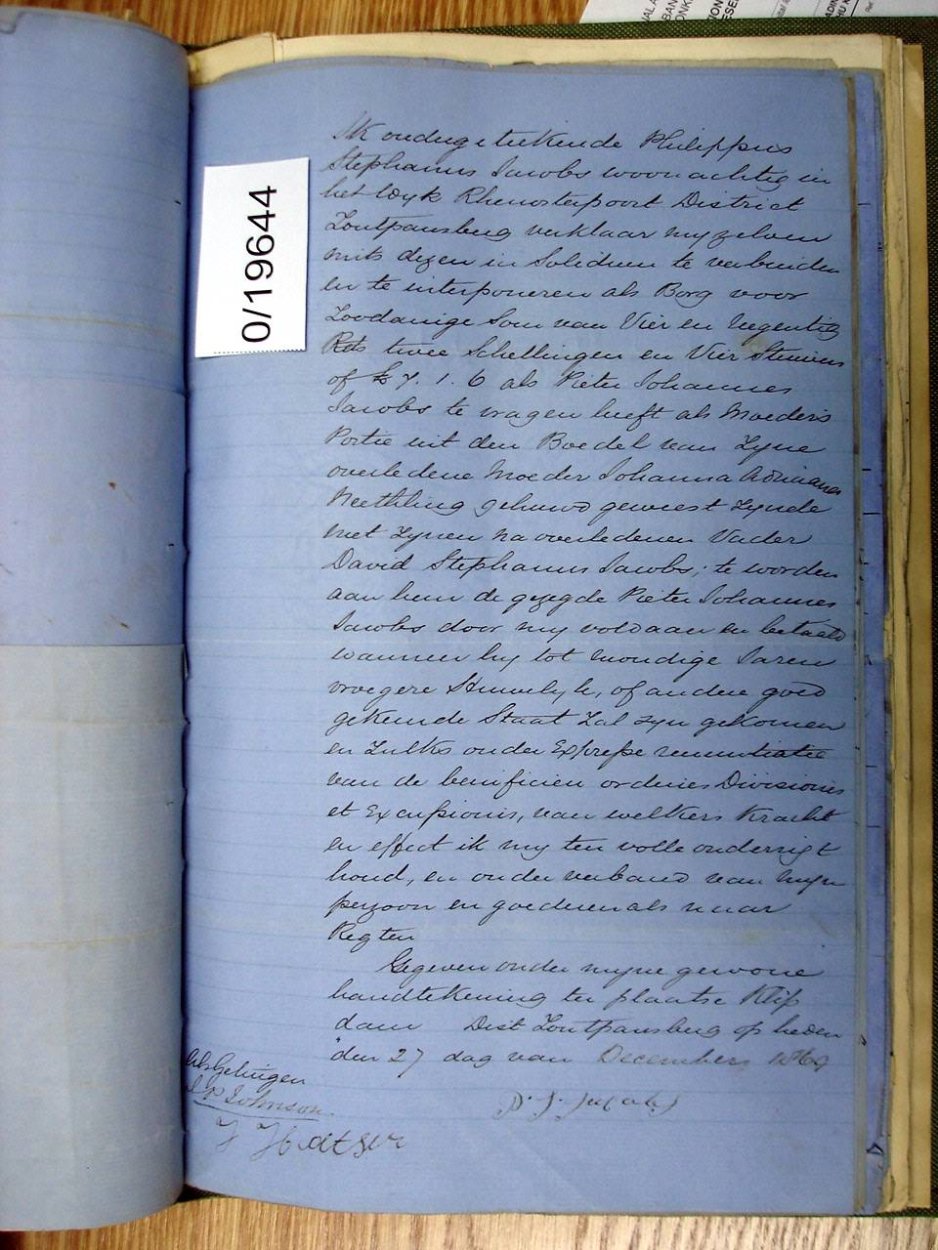 0/19644
Ik ondergeteekende Philippus
Stephanus Jacobs woonachtig in
het Wyk Rhenosterpoort District
Zoutpansberg verklaar myzelven
mits dezen in Solidum te verbinden
en te interponeren als Borg voor
Zoodanige Som van Vier en Negentig
Rds twee Schellingen en Vier Stuivers
of £ 7. 1. 6 als Pieter Johannes
Jacobs te vragen heeft als Moeders
Portie uit den Boedel van Zyne
overledene Moeder Johanna Adriana
Neethling gehuwd geweest Zynde
met Zynen na overledenen Vader
David Stephanus Jacobs; te worden
aan hem de gezegde Pieter Johannes
Jacobs door my voldaan en betaald
wanneer hy tot mondige Jaren
vroegere Huwelyk, of andere goed
gekeurde Staat Zal zyn gekomen
en Zulks onder Expresse renuntiatie
van de benificien ordines Divisionis
et Excussionis, van welkers Kracht
en effect ik my ten volle onderrigt
houd, en onder verband van myn
perzoon en goederen als naar
Regten
Gegeven onder myne gewone
handtekening ter plaatse Klip
dam Dist Zoutpansberg op heden
den 27 dag van Decembers 1869
Als Getuigen
P. S. Jacobs
J P Johnson